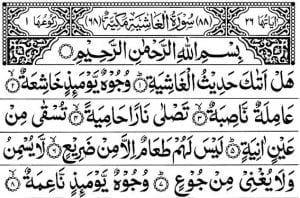 اٰیاتها ٢٦ (٨٨) سُوْرَةُ الْغَاشِيَةِ مَكِّيَّةٌ (٦٨) رکوعها ١
بِسْمِ اللّٰهِ الرَّحْمٰنِ الرَّحِيْمِ
هَلْ اَتٰىكَ حَدِيْثُ الْغَاشِيَةِ ۝١ وُجُوْهٌ يَّوْمَئِذٍ خَاشِعَةٌ ۝٢
عَامِلَةٌ نَّاصِبَةٌ ۝٣ تَصْلٰى نَارًا حَامِيَةً ۝٤ تُسْقٰى مِنْ
عَيْنٍ اٰنِيَةٍ ۝٥ لَيْسَ لَهُمْ طَعَامٌ اِلَّا مِنْ ضَرِيْعٍ ۝٦ لَّا يُسْمِنُ
وَلَا يُغْنِيْ مِنْ جُوْعٍ ۝٧ وُجُوْهٌ يَّوْمَئِذٍ نَّاعِمَةٌ ۝٨